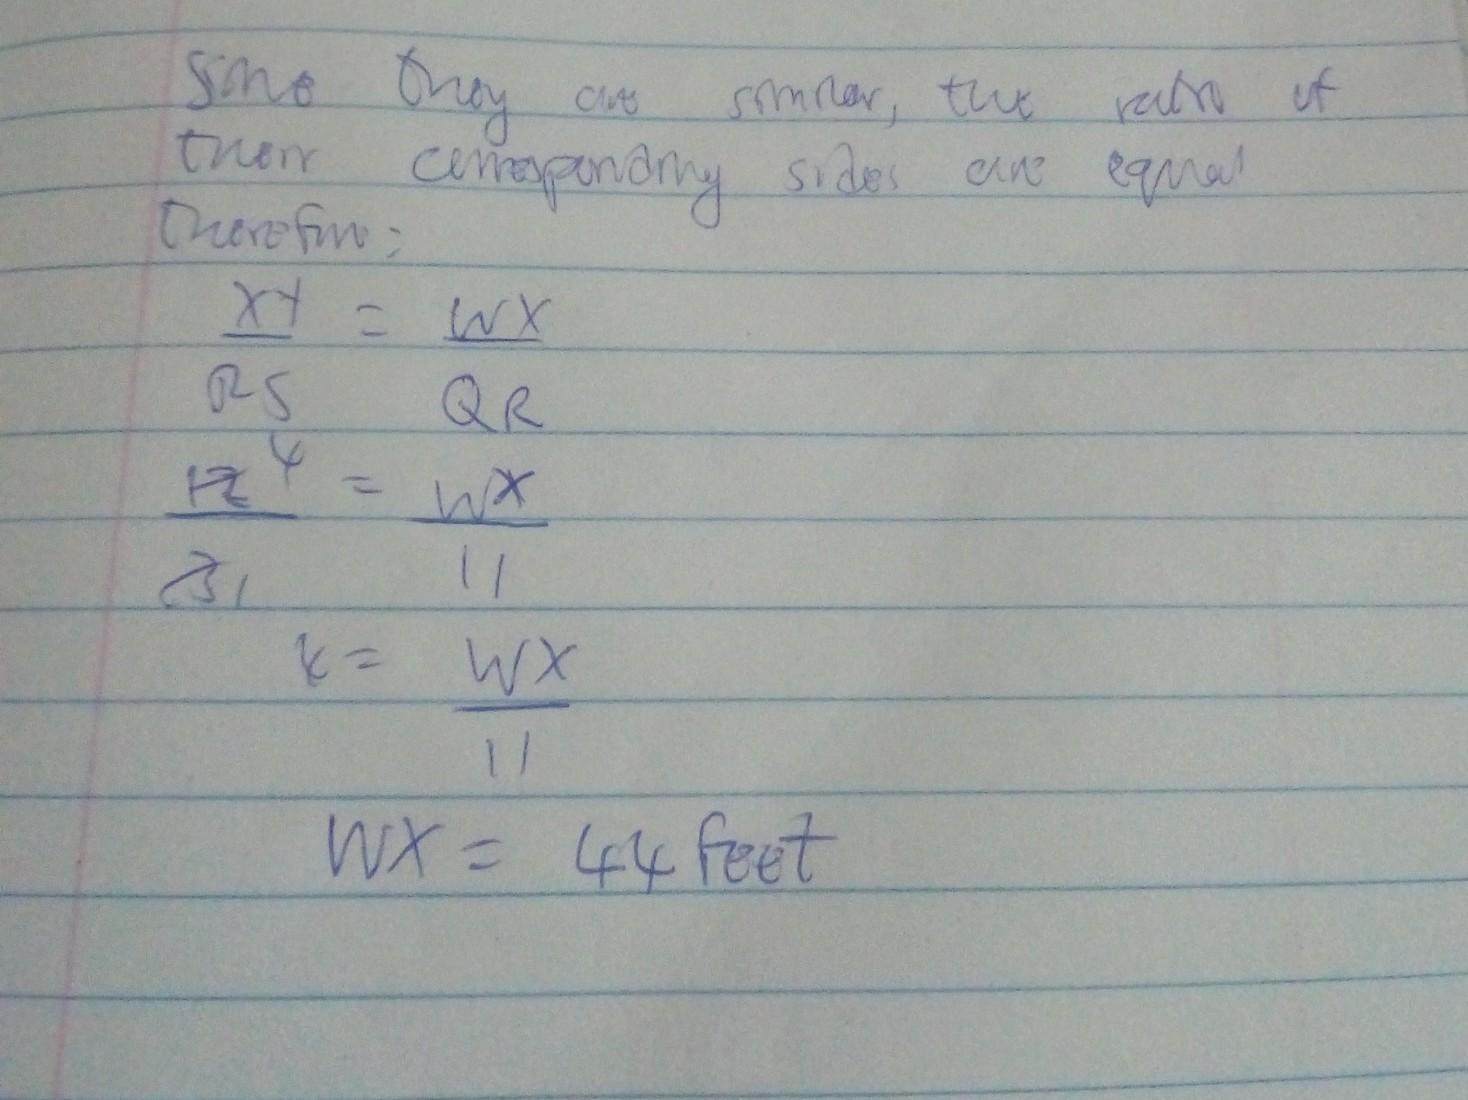 Since they are similar, the ratio of
their corresponding sides are equal
therefore:
XY = WX
RS QR
12 4 = WX
3 1 11
4 = WX
11
WX = 44 feet